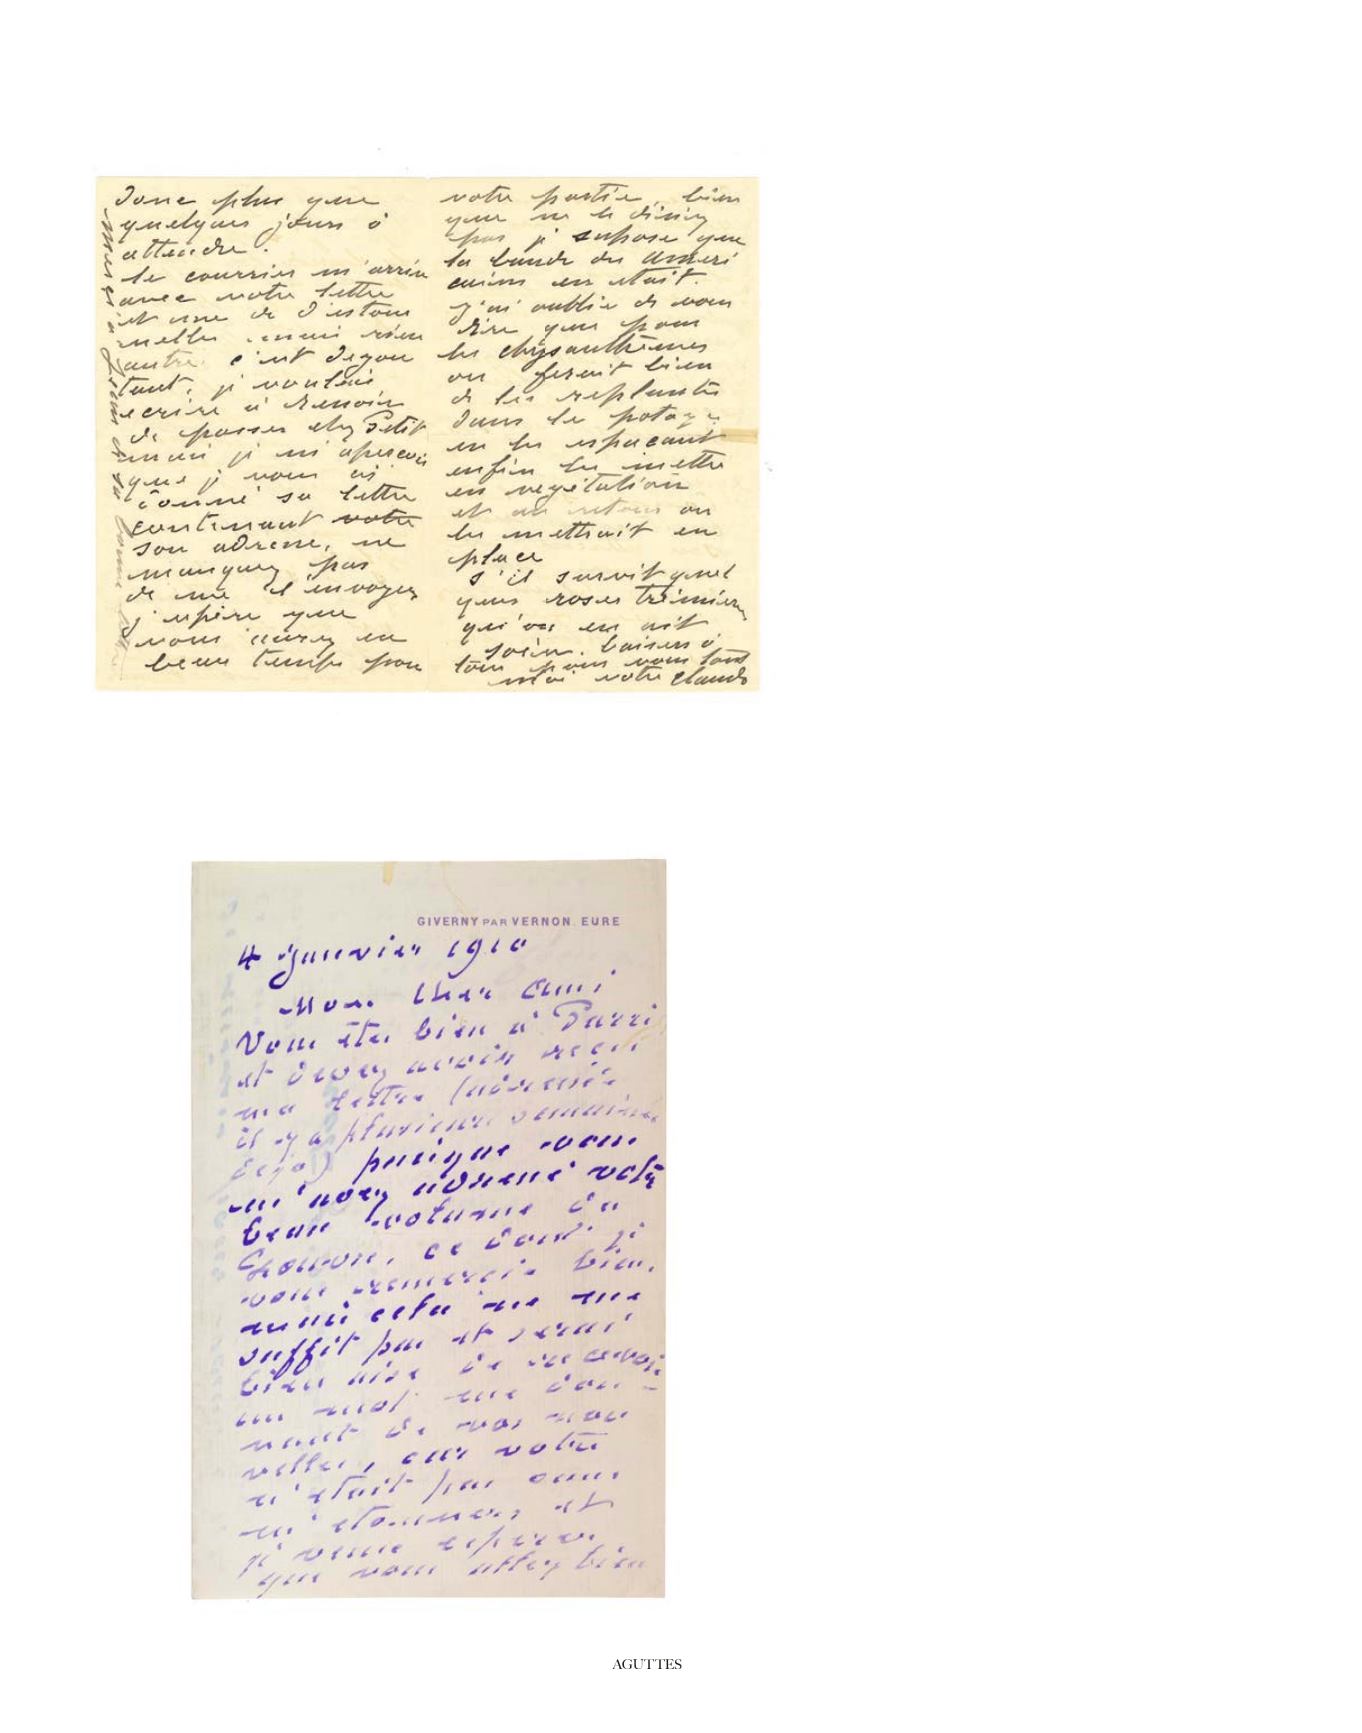 donc plus que
quelques jours à
attendre.
le courrier m'arrive
avec votre lettre
et une de
mais rien
autre. c'est degou
tant, je voulais
ecrire à Renoir
de passer chez Petit
mais je m'aperçois
que je vous ai
donné sa lettre
contenant votre
son adresse, ne
manquez pas
de me l'envoyer
j'espère que
vous aurez eu
beau temps pou
votre partie, bien
que ne le disiez
pas je supose que
la bande des ameri
cains en etait.
j'ai oublié de vous
dire que pour
les chrysanthèmes
on ferait bien
de les replanter
dans le potager
en les espacant
enfin les mettre
en vegetation
et au retour on
les mettrait en
place
s'il survit quel
ques roses trémières
qu'on en ait
soin. baisers à
tous pour vous tous
moi votre Claude
GIVERNY PAR VERNON. EURE
4 Janvier 1910
Mon cher ami
Vous êtes bien à Parri
et devez avoir reçu
ma lettre (adressée
il y a plusieurs semaines
deja) puisque vous
m'avez adressé votre
beau volume du
ce dont je
vous remercie bien.
mais cela ne me
suffit pas et serai
bien aise de recevoir
un mot me don-
nant de vos nou
velles, car votre
n'etait pas sans
m'etonner, et
je veux esperer
que vous allez bien
AGUTTES